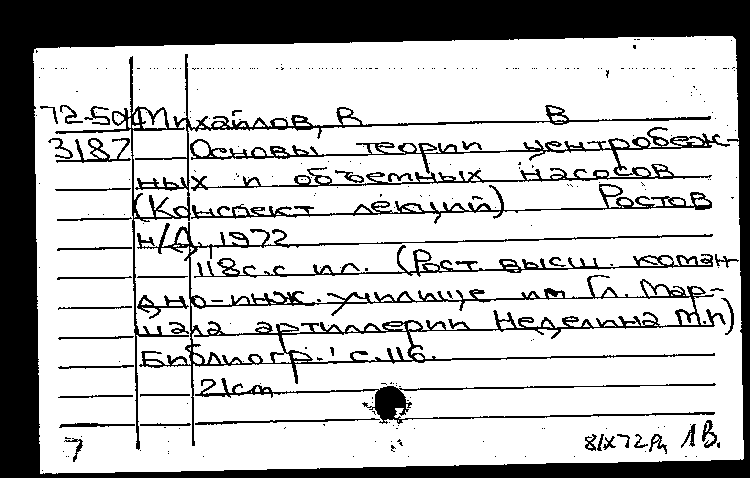 72-504 Михайлов, В В
3187 Основы теории центробеж-
ных и объемных насосов
(Конспект лекций). Ростов
н/Д., 1972.
118с. с ил. (Рост. высш. коман
дно-инж. училище им Гл. Мар-
шала артиллерии Неделина М.И)
Библиогр.: с. 116.
21 cm
7 1В.